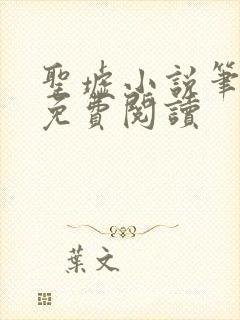 聖墟小説筆
免費閱讀
葉文